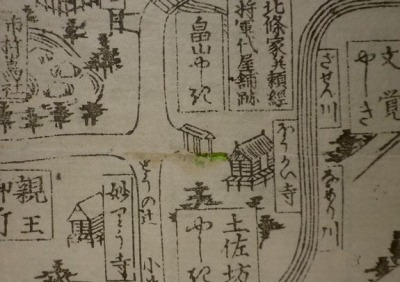 文覚
やしき
ざせん川
北條家并頼經
将軍代屋舗跡
畠山やしき
なめり川
ほうかい寺
土佐坊
やしき
とうの辻
小
妙りう寺
親王